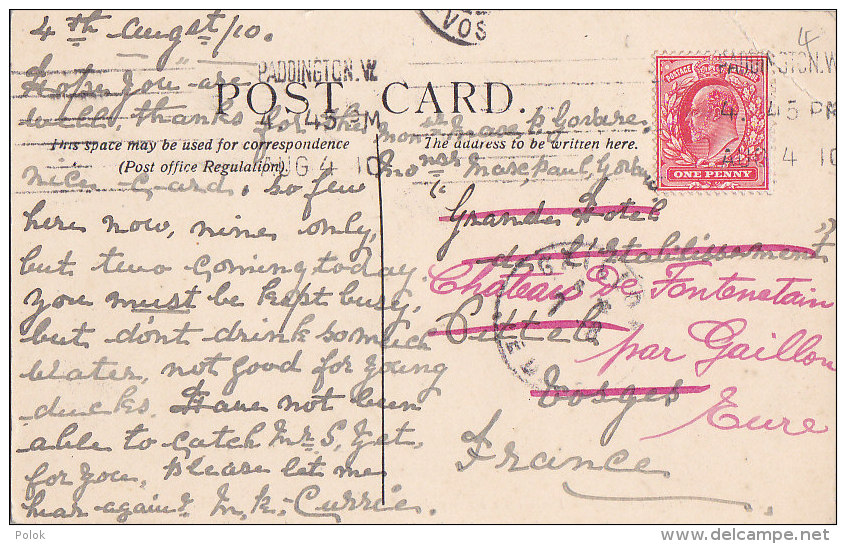 4th Augst/10.
Hope you are
well, thanks for the
nice card. So few
here now, nine only,
but two coming today
you must be kept busy,
but don't drink so much
water, not good for young
ducks. Have not been
able to catch Mr S, yet,
for you, please let me
hear again. M. K. Currie.
VOS
PADDINGTON.W
4 45 PM
AUG 4 10
POST CARD.
This space may be used for correspondence
(Post office Regulation)
The address to be written here.
PADDINGTON.W
4 45 PM
AUG 4 10
4
POSTAGE
ONE PENNY
Marc Paul
Grande Hotel
de l'Etablissement
Vittel
Vosges
France
Chateau De Fontenetain
par Gaillon
Eure
GAILLON
Polok
www.delcampe.net